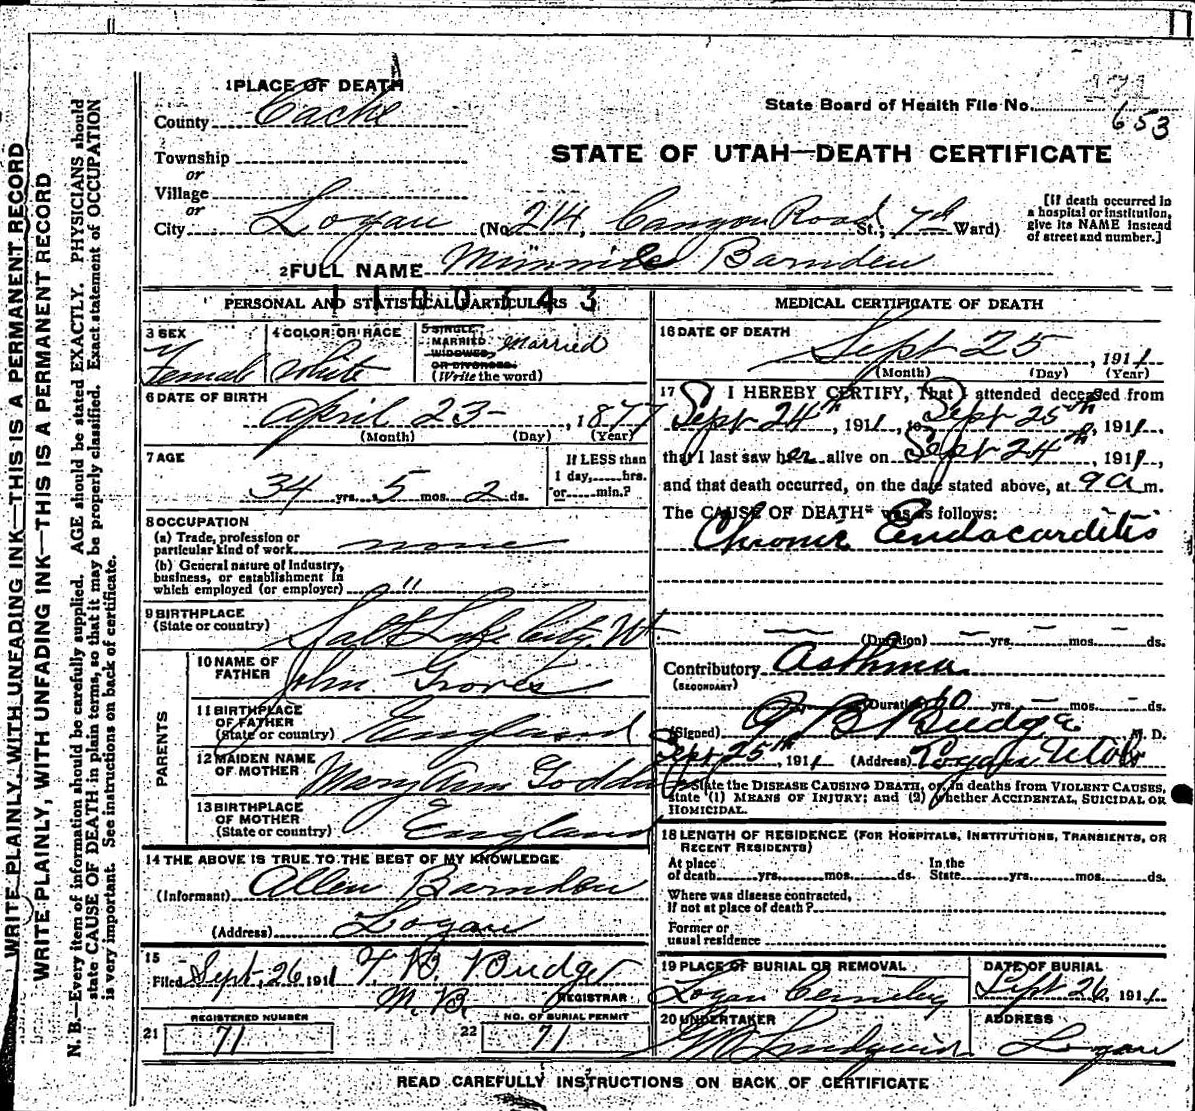 WRITE PLAINLY, WITH UNFADING INK—THIS IS A PERMANENT RECORD
WRITE PLAINLY, WITH UNFADING INK—THIS IS A PERMANENT RECORD
N. B.—Every item of information should be carefully supplied. AGE should be stated EXACTLY. PHYSICIANS should
state CAUSE OF DEATH in plain terms, so that it may be properly classified. Exact statement of OCCUPATION
is very important. See instructions on back of certificate.
1 PLACE OF DEATH
County Cache
State Board of Health File No.
653
Township
or
Village
or
STATE OF UTAH—DEATH CERTIFICATE
City Logan (No. 214, Canyon Road St.; 7th Ward)
[If death occurred in
a hospital or institution,
give its NAME instead
of street and number.]
2 FULL NAME Barnden
1100743
PERSONAL AND STATISTICAL PARTICULARS
3 SEX
Female
4 COLOR OR RACE
White
5 SINGLE,
MARRIED
WIDOWED,
OR DIVORCED.
(Write the word)
Married
6 DATE OF BIRTH
April 23 - , 1877
(Month) (Day) (Year)
7 AGE
34 yrs. 5 mos. 2 ds.
If LESS than
1 day, hrs.
or min.?
8 OCCUPATION
(a) Trade, profession or
particular kind of work none
(b) General nature of industry,
business, or establishment in
which employed (or employer) "
9 BIRTHPLACE
(State or country) Salt Lake City, Ut
PARENTS
10 NAME OF
FATHER John Groves
11 BIRTHPLACE
OF FATHER
(State or country) England
12 MAIDEN NAME
OF MOTHER Mary Ann Goddard
13 BIRTHPLACE
OF MOTHER
(State or country) England
14 THE ABOVE IS TRUE TO THE BEST OF MY KNOWLEDGE
(Informant) Allen Barnden
(Address) Logan
15
Filed Sept, 26 1911 T. B. Budge
REGISTRAR
21 REGISTERED NUMBER
71
22 NO. OF BURIAL PERMIT
71
MEDICAL CERTIFICATE OF DEATH
16 DATE OF DEATH
Sept 25 , 1911
(Month) (Day) (Year)
17 I HEREBY CERTIFY, That I attended deceased from
Sept 24th, 1911, to Sept 25th, 1911,
that I last saw her alive on Sept 24th, 1911,
and that death occurred, on the date stated above, at 9 a m.
The CAUSE OF DEATH* was as follows:
Chronic Endocarditis
(Duration) yrs. mos. ds.
Contributory Asthma
(SECONDARY)
(Duration) yrs. mos. ds.
(Signed) Budge M. D.
Sept 25th, 1911 (Address) Logan Utah
*State the DISEASE CAUSING DEATH, or, in deaths from VIOLENT CAUSES,
state (1) MEANS OF INJURY; and (2) whether ACCIDENTAL, SUICIDAL OR
HOMICIDAL.
18 LENGTH OF RESIDENCE (FOR HOSPITALS, INSTITUTIONS, TRANSIENTS, OR
RECENT RESIDENTS)
At place
of death yrs. mos. ds.
In the
State yrs. mos. ds.
Where was disease contracted,
If not at place of death?
Former or
usual residence
19 PLACE OF BURIAL OR REMOVAL
Logan Cemetery
DATE OF BURIAL
Sept 26, 1911
20 UNDERTAKER
Lundquist
ADDRESS
Logan
READ CAREFULLY INSTRUCTIONS ON BACK OF CERTIFICATE